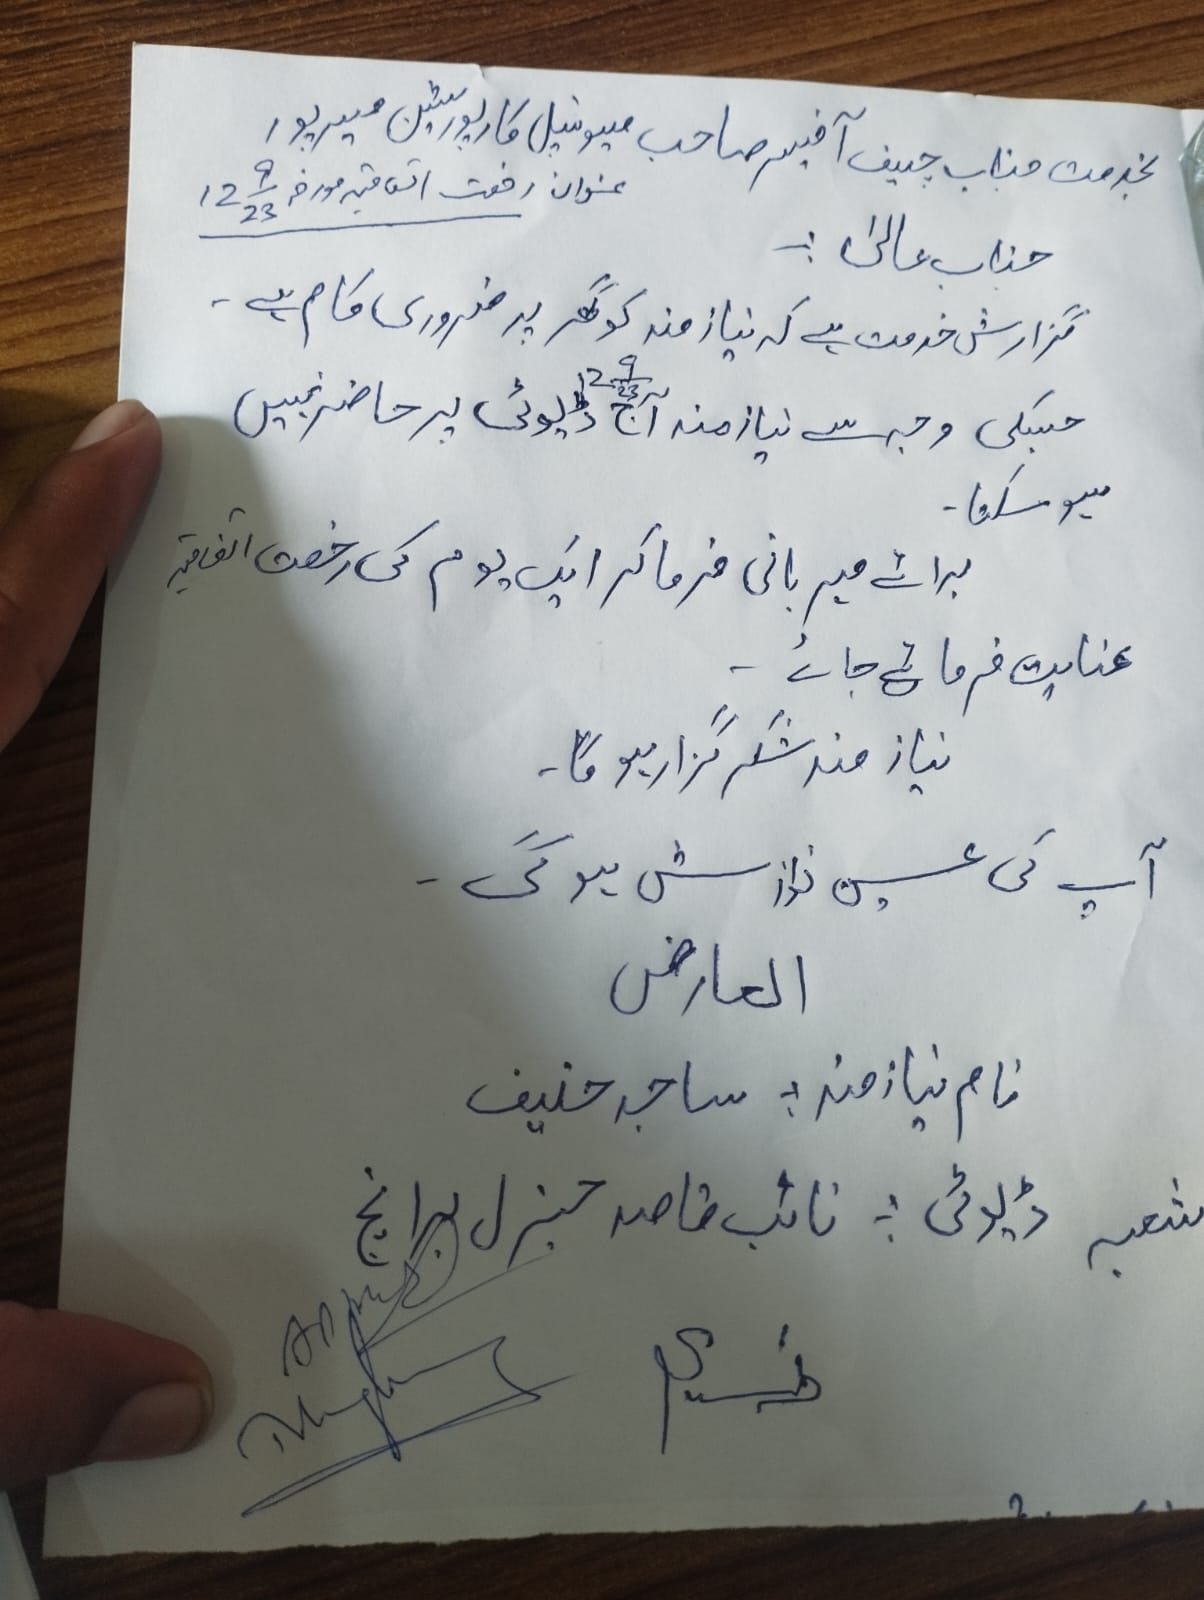 بخدمت جناب چیف آفیسر صاحب میونسپل کارپوریشن میرپور
عنوان رخصت اتفاقیہ مورخہ 12 9/23
جناب عالیٰ :-
گزارش خدمت ہے کہ نیازمند کو گھر پر ضروری کام ہے -
جسکی وجہ سے نیازمند آج 12 9/23 ڈیوٹی پر حاضر نہیں
ہو سکتا -
برائے مہربانی فرما کر ایک یوم کی رخصت اتفاقیہ
عنایت فرمائے جائے -
نیاز مند شکر گزار ہو گا -
آپ کی عین نوازش ہو گی -
العارض
نام نیازمند :- ساجد حنیف
شعبہ ڈیوٹی :- نائب قاصد جنرل برانچ